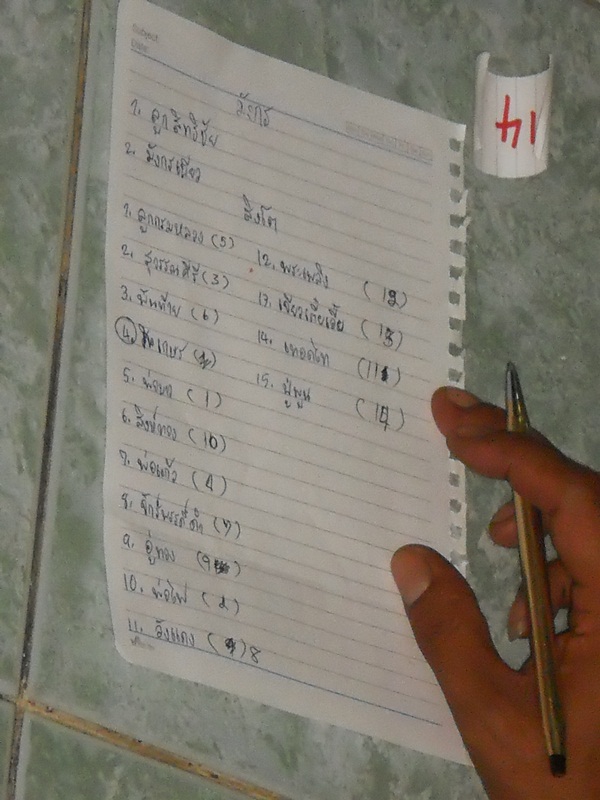 Subject
Date
มังกร
1. ลูกสิทธิชัย
2. มังกรเขียว
สิงโต
1. ลูกกรมหลวง (5)
2. สุวรรณศิริ (3)
3. พันท้าย (6)
4.
5. พ่อ (1)
6. สิงห์ทอง (10)
7. พ่อแก้ว (4)
8. จักรพรรดิ์ดำ (7)
9. อู่ทอง (9)
10. พ่อไฟ (2)
11. วังแดง ( ) 8
12. พระเพลิง (12)
13. เขียวเกี้ยเจี้ย (13)
14. (11)
15. ปู่พูน (14)
14